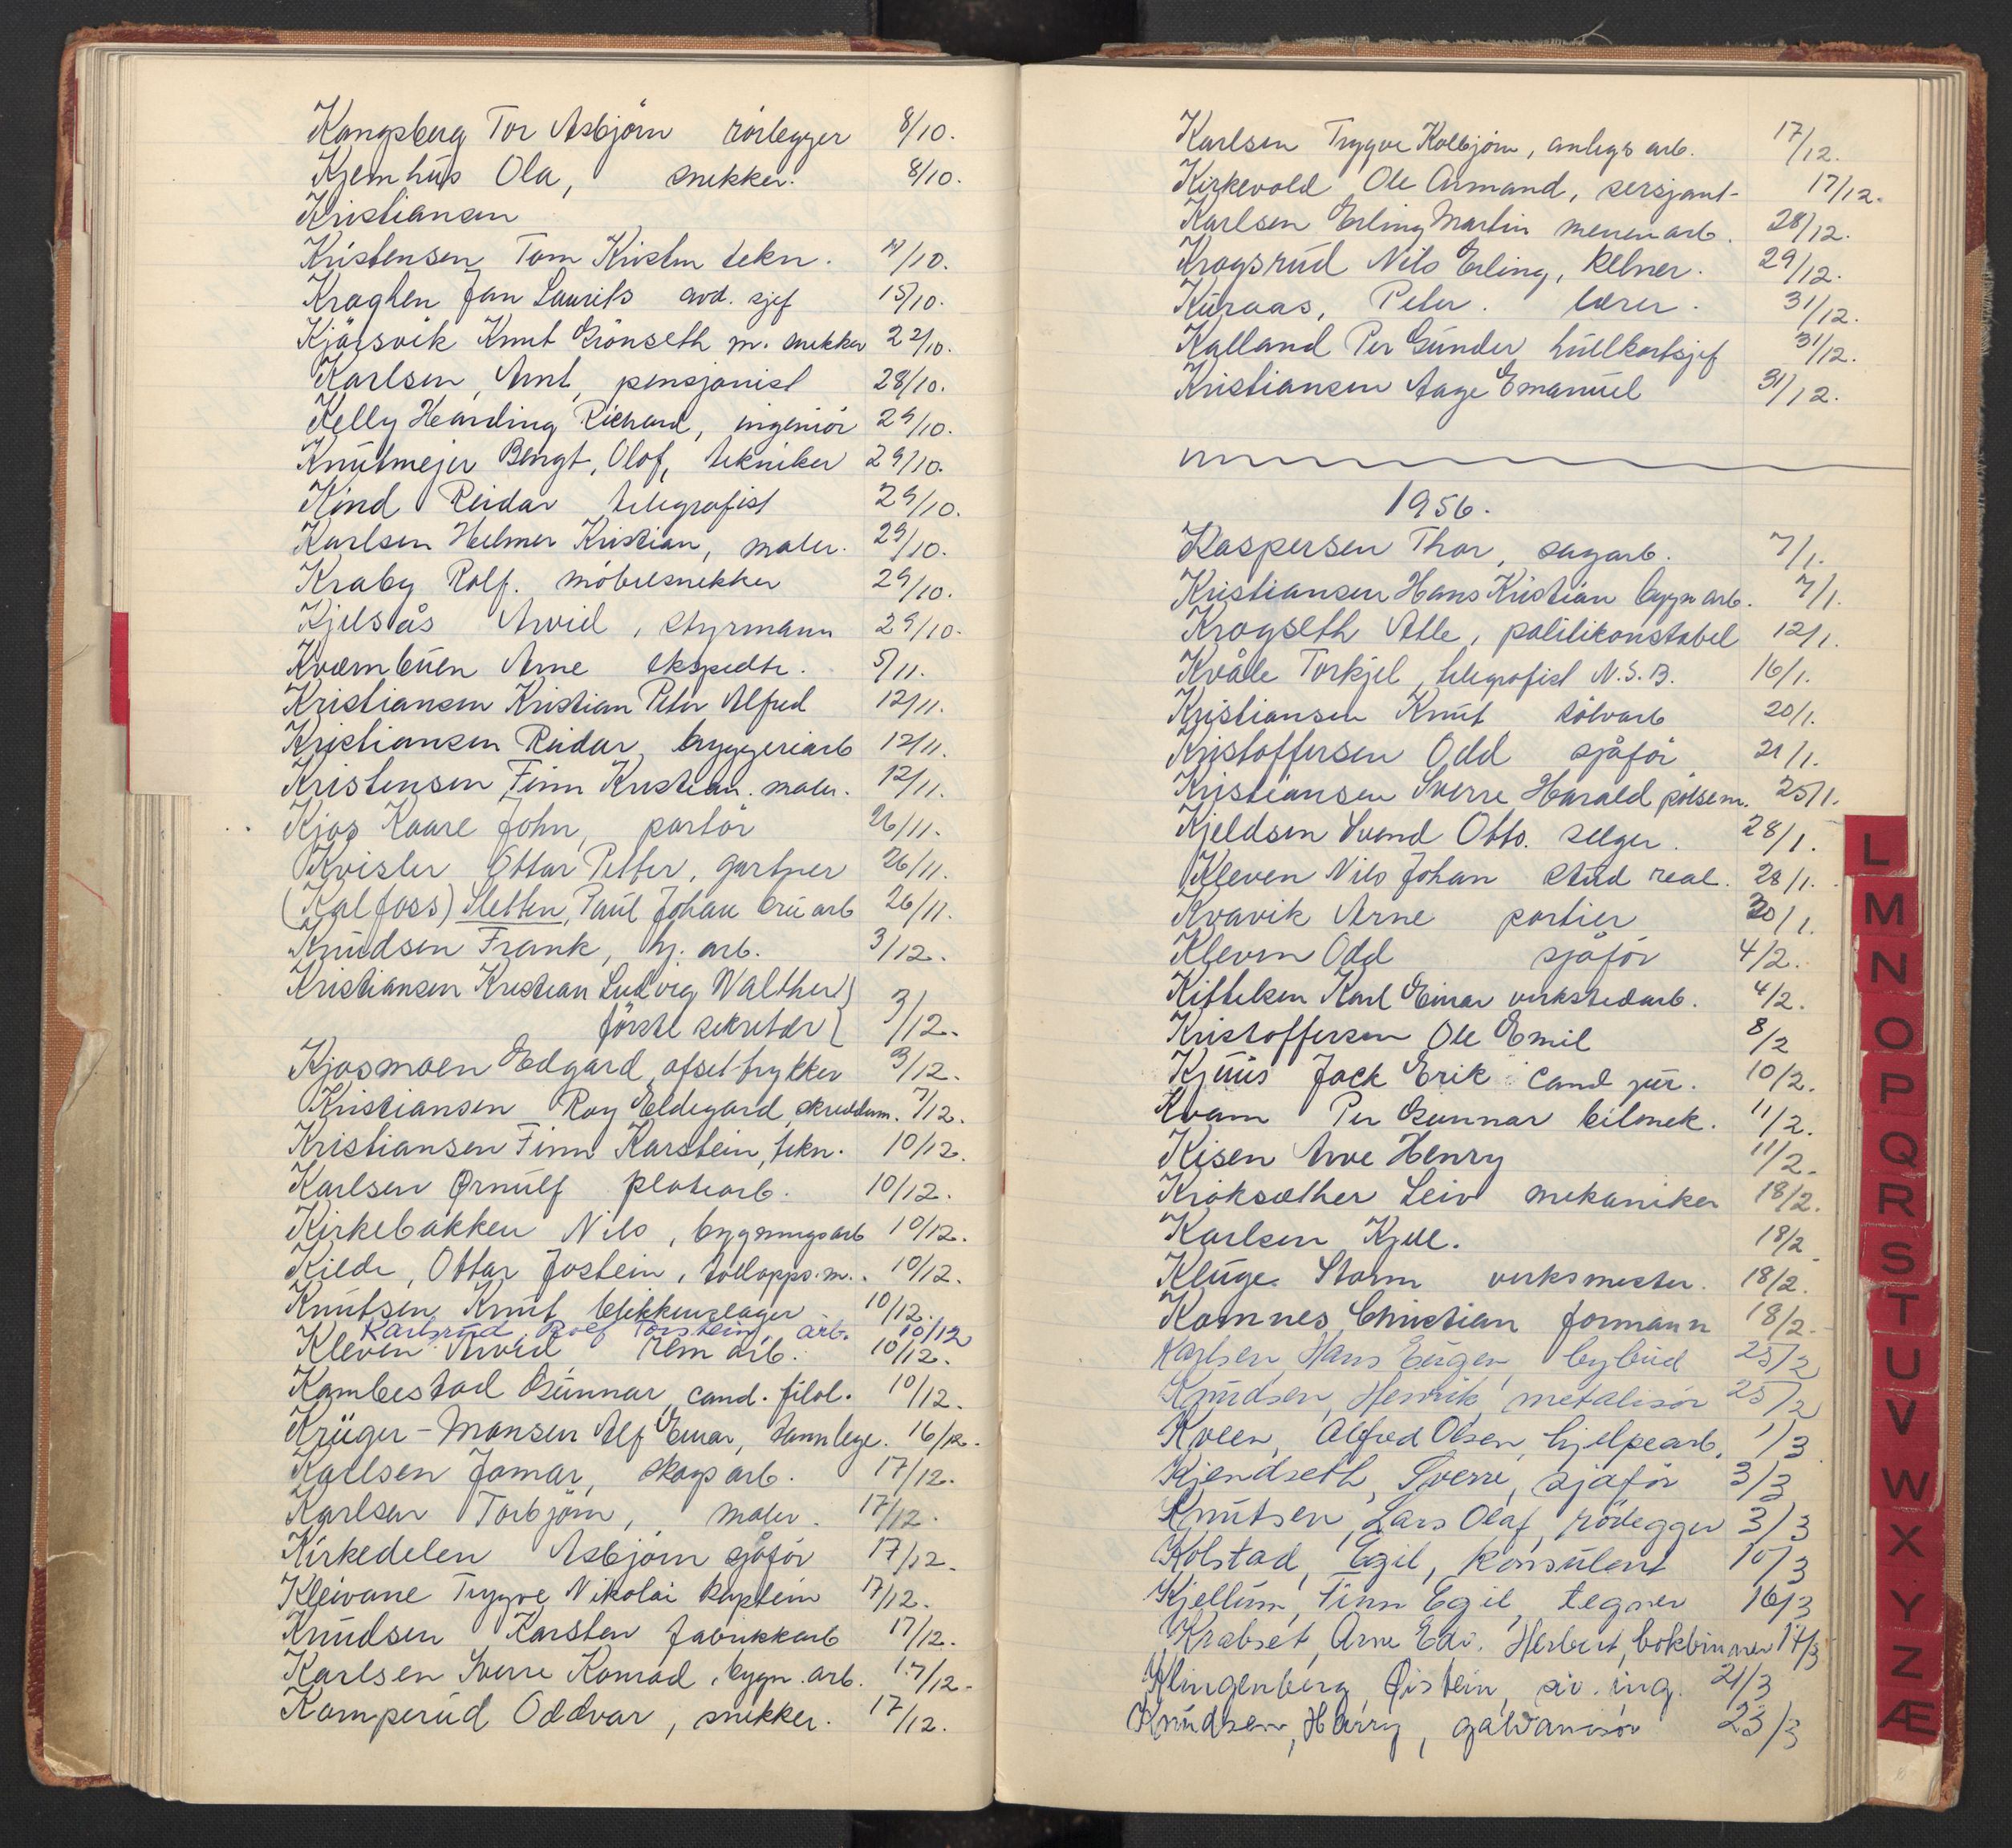 Kongsberg Tor Asbjörn rörlegger 8/10.
Kjemhus Ola, snekker. 8/10.
Kristiansen
Kristensen Tom Kristen tekn. 11/10.
Kroghen Jan Laurits avd. sjef 15/10.
Kjärsvik Knut Grönseth m. snekker 22/10.
Karlsen, Arnt, pensjonist 28/10.
Kelly Hearding Richard, ingeniör 29/10.
Knutmejer Bengt, Olof, tekniker 29/10.
Kind Reidar telegrafist 29/10.
Karlsen Helmer Kristian, maler. 29/10.
Kraby Rolf. möbelsnekker 29/10.
Kjelsås Arvid, styrmann 29/10.
Kværnbuen Arne ekspedtr. 5/11.
Kristiansen Kristian Peter Alfred 12/11.
Kristiansen Reidar, bryggeriarb 12/11.
Kristensen Finn Kristian. maler. 12/11.
Kjos Kaare John, portör 26/11.
Kvisler Ottar Petter, gartner 26/11.
(Kalfoss) Sletten, Paul Johan bru arb 26/11.
Knudsen Frank, hj. arb. 3/12.
Kristiansen Kristian Ludvig Walther}
förste sekretær} 3/12.
Kjosmoen Edgard, ofset-trykker 3/12.
Kristiansen Roy Eldegard, skreddem. 7/12.
Kristiansen Finn Karstein, tekn. 10/12.
Karlsen Ørnulf platearb. 10/12.
Kirkebakken Nils, bygningsarb 10/12.
Kilde, Ottar Jostein, tollopps.m. 10/12.
Knutsen Knut blikkenslager 10/12.
Karlsrud, Rolf Torstein, arb. 10/12
Kleven Arvid rem arb. 10/12.
Kambestad Gunnar, cand. filol. 10/12.
Krüger-Monsen Alf Einar, tannlege. 16/12.
Karlsen Jomar, skogsarb. 17/12.
Karlsen Torbjörn, maler. 17/12.
Kirkedelen Asbjörn sjåför 17/12.
Kleivane Trygve Nikolai kaptein 17/12.
Knudsen Karsten fabrikkarb 17/12.
Karlsen Sverre Konrad, bygn. arb. 17/12.
Kamperud Oddvar, snekker. 17/12.
Karlsen Trygve Kolbjörn, anlegs arb. 17/12.
Kirkevold Ole Armand, sersjant- 17/12.
Karlsen Erling Martin murerarb. 28/12.
Krogsrud Nils Erling, kelner. 29/12.
Kuraas, Peter. lærer. 31/12.
Kalland Per Gunder hullkortsjef 31/12.
Kristiansen Aage Emanuel 31/12.
1956.
Kaspersen Thor, sagarb. 7/1.
Kristiansen Hans Kristian bygn arb. 7/1.
Krogseth Atle, politikonstabel 12/1.
Kvåle Torkjel, telegrafist N.S.B. 16/1.
Kristiansen Knut sölvarb 20/1.
Kristoffersen Odd sjåför 21/1.
Kristiansen Sverre Harald pölsem. 25/1.
Kjeldsen Svend Otto. selger. 28/1.
Kleven Nils Johan stud real. 28/1.
Kvavik Arne portier 30/1.
Kleven Odd sjåför 4/2.
Kittelsen Karl Einar verkstedarb. 4/2.
Kristoffersen Ole Emil 8/2
Kjuus Jack Erik cand jur. 10/2.
Kvam Per Gunnar bilmek. 11/2.
Kisen Arve Henry 11/2.
Kroksæther Leiv mekaniker 18/2.
Karlsen Kjell. 18/2
Kluge Storm verksmester. 18/2.
Komnes Christian formann 18/2.
Karlsen, Hans Eugen, bybud 25/2
Knudsen, Henrik, metalisör 25/2
Kveen, Alfred Olsen, hjelpearb. 1/3
Kjendseth, Sverre, sjåför 3/3
Knutsen, Lars Olaf, rörlegger 3/3
Kolstad, Egil, konsulent 10/3
Kjellum, Finn Egil, tegner 16/3
Krabset, Arne Edv. Herbert, bokbinner 17/3
Klingenberg, Øistein, siv. ing. 21/3
Knudsen, Harry, galvanisör 23/3
L
M
N
O
P
Q
R
S
T
U
V
W
X
Y
Z
Æ